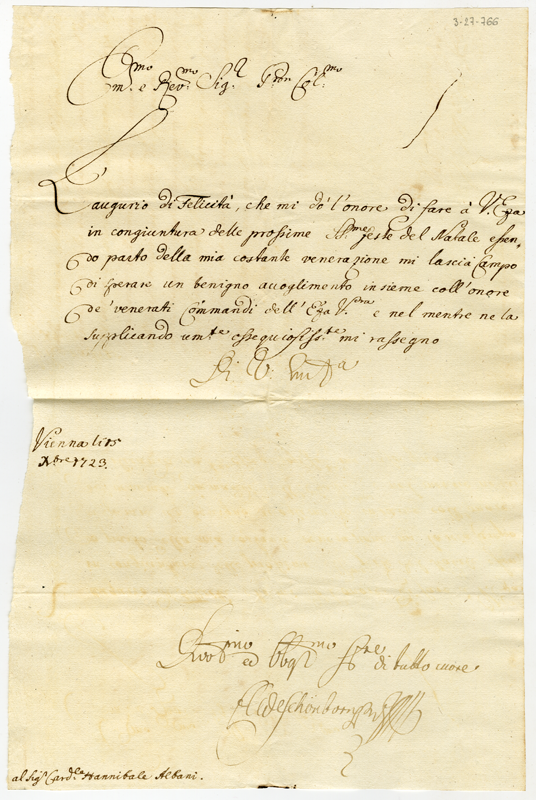 3-27-766
Em.mo e Rev.mo Sig.r P.ron Col.mo
L'augurio di Felicità, che mi dò l'onore di fare à V. Eza
in congiuntura delle prossime S.me feste del Natale essen,
do parto della mia costante venerazione mi lascia Campo
di sperare un benigno accoglimento insieme coll'onore
de' venerati Commandi dell'Eza V.ra e nel mentre ne la
supplicando um.te ossequiosiss.te mi rassegno
Di V. Em.za
Vienna li 15
Xbre 1723.
ed Obgl.mo S.re di tutto cuore
de Schönborn
al Sig.r Card.le Hannibale Albani.